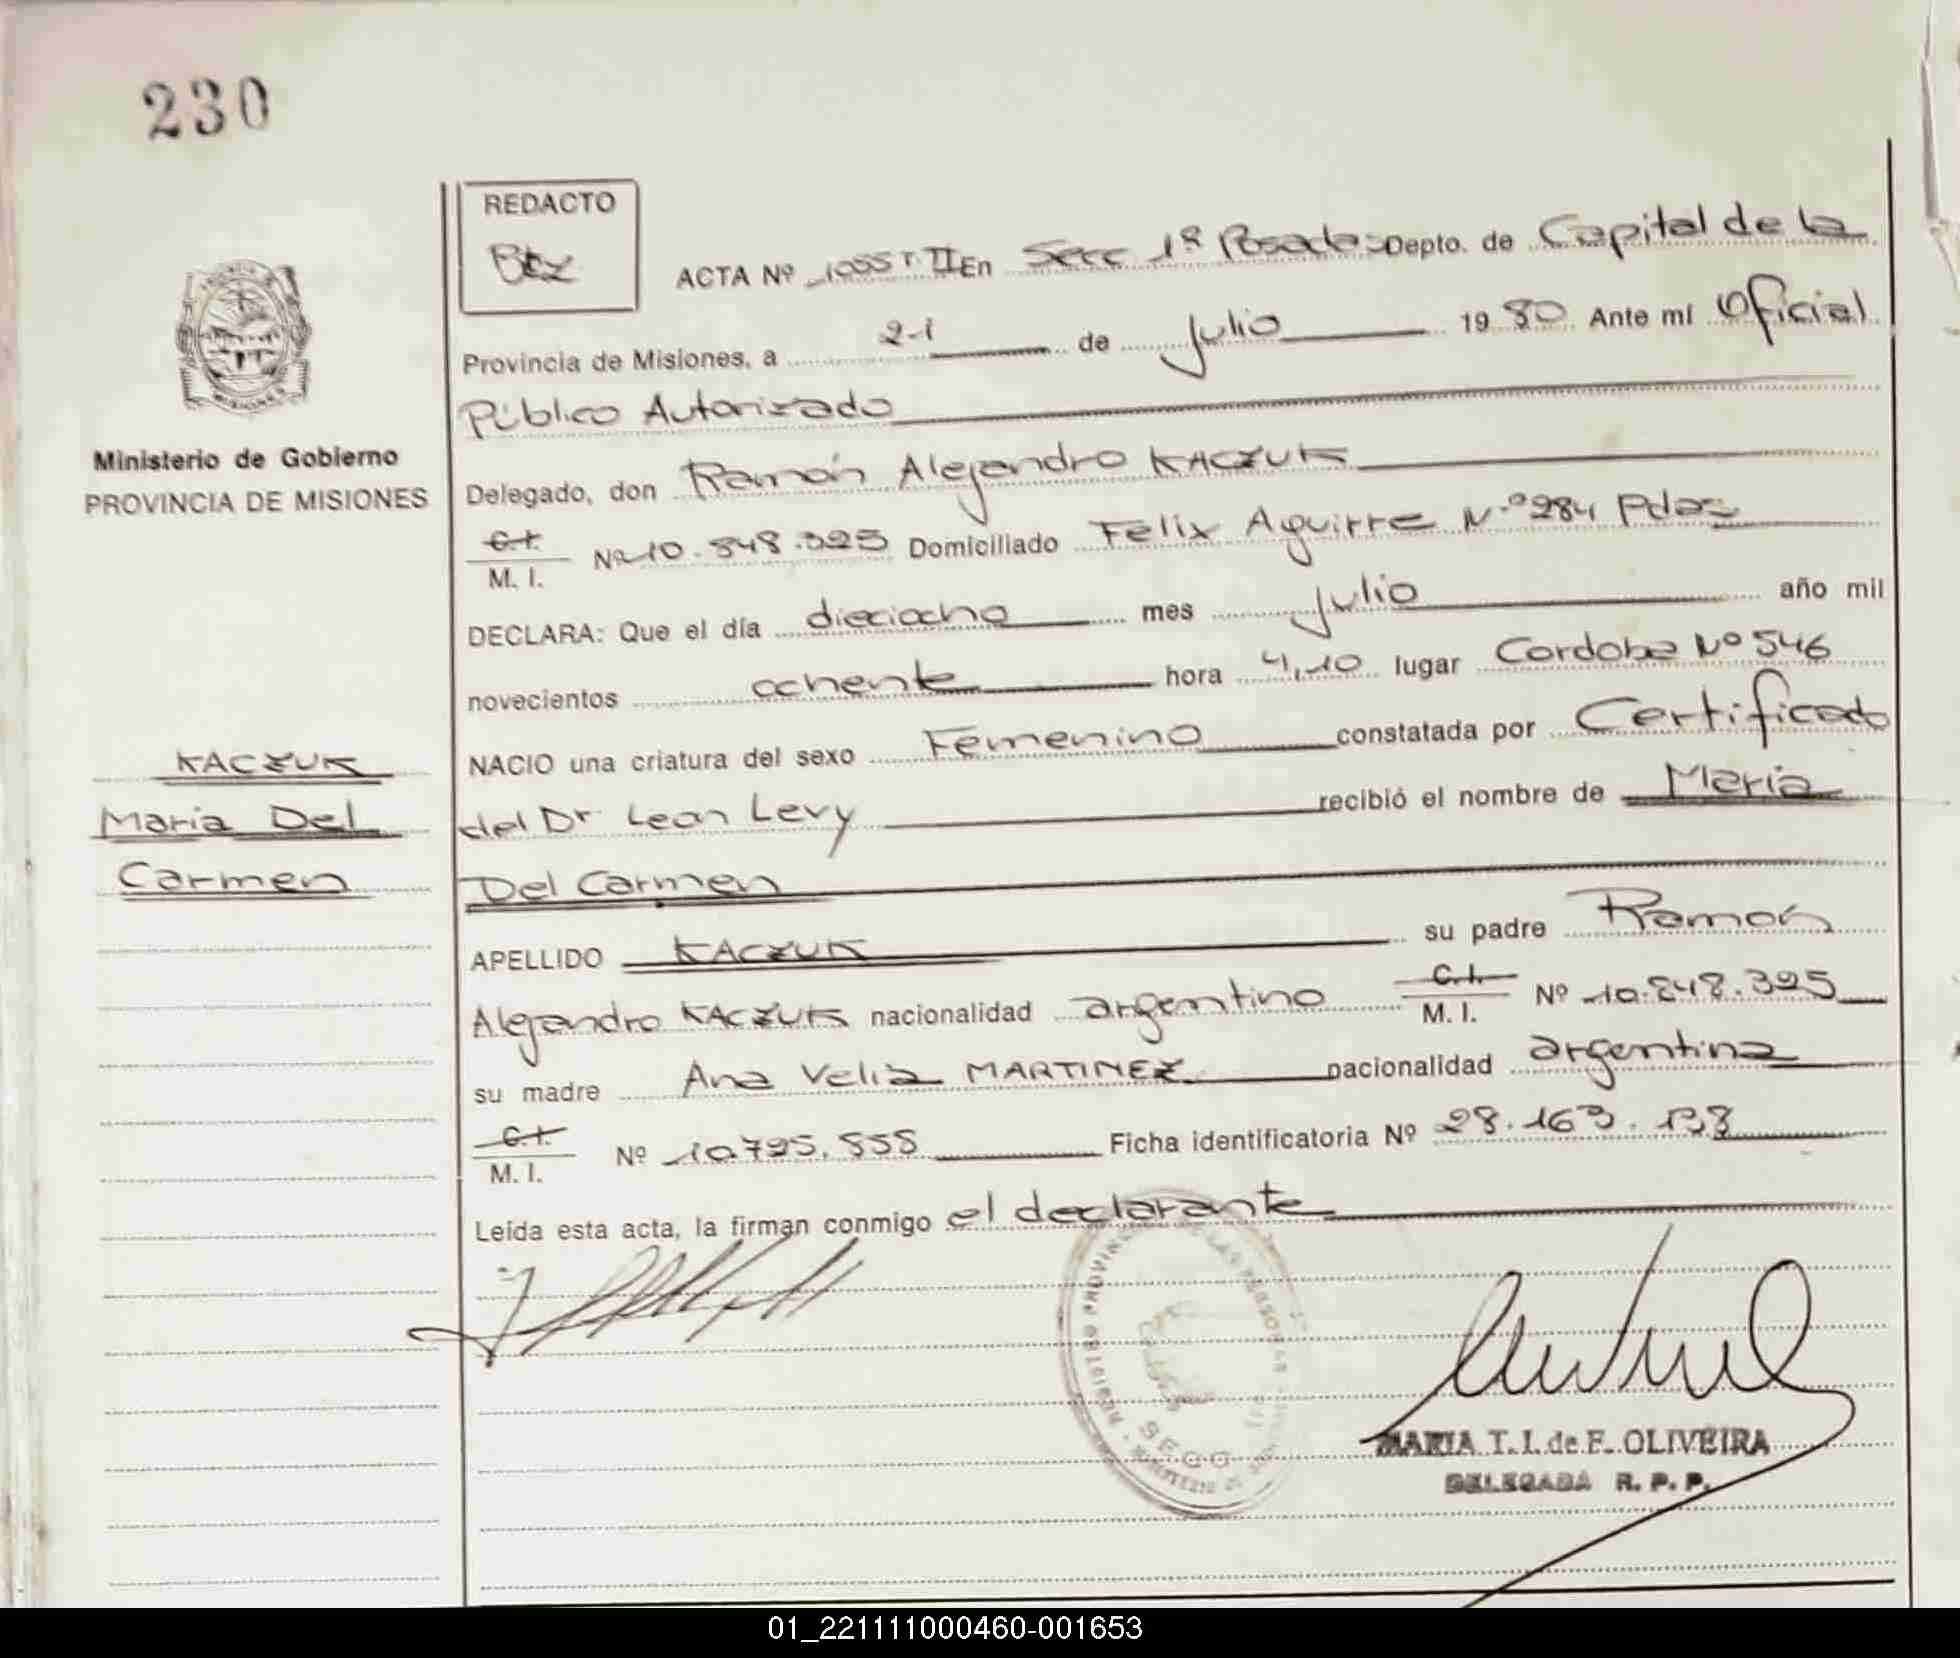 230
REDACTO
Btz
ACTA Nº 1055 T. II En Secc 1ª Posadas Depto. de Capital de la
Provincia de Misiones, a 21 de Julio 1980 Ante mí Oficial
Público Autorizado
Delegado, don Ramón Alejandro KACZUK
C.I. M. I. Nº 10.848.395 Domiciliado Felix Aguirre N.º 284 Pdas
DECLARA: Que el día dieciocho mes Julio año mil
novecientos ochenta hora 4,10 lugar Cordoba Nº 546
NACIO una criatura del sexo Femenino constatada por Certificado
del Dr Leon Levy recibió el nombre de Maria
Del Carmen
APELLIDO KACZUK su padre Ramón
Alejandro KACZUK nacionalidad argentino C.I. M. I. Nº 10.848.395
su madre Ana Velia MARTINEZ nacionalidad argentina
C.I. M. I. Nº 10.795.555 Ficha identificatoria Nº 28.163.
Leída esta acta, la firman conmigo el declarante
MISIONES
Ministerio de Gobierno
PROVINCIA DE MISIONES
KACZUK
Maria Del
Carmen
MARIA T. I. de F. OLIVEIRA
DELEGADA R. P. P.
01_221111000460-001653